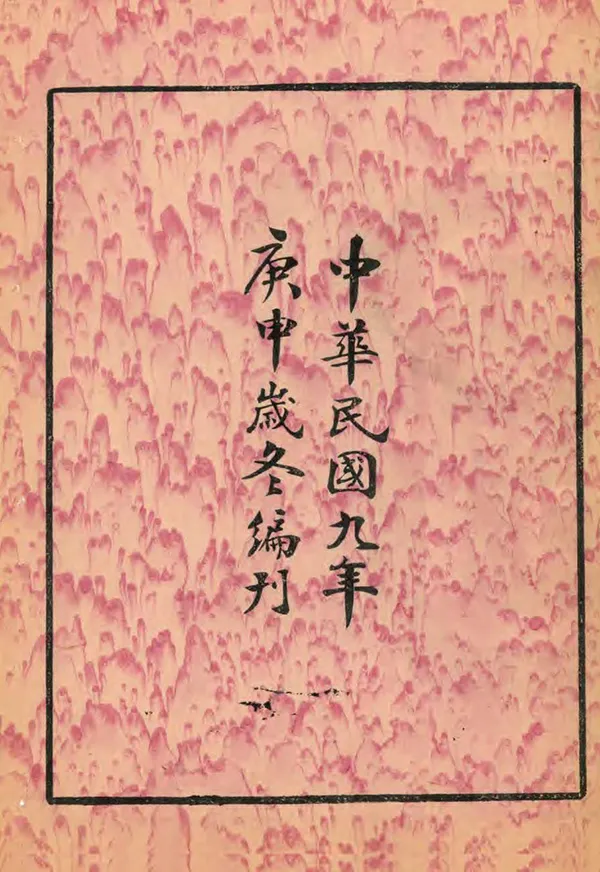 中華民國九年
庚申歲冬編刊